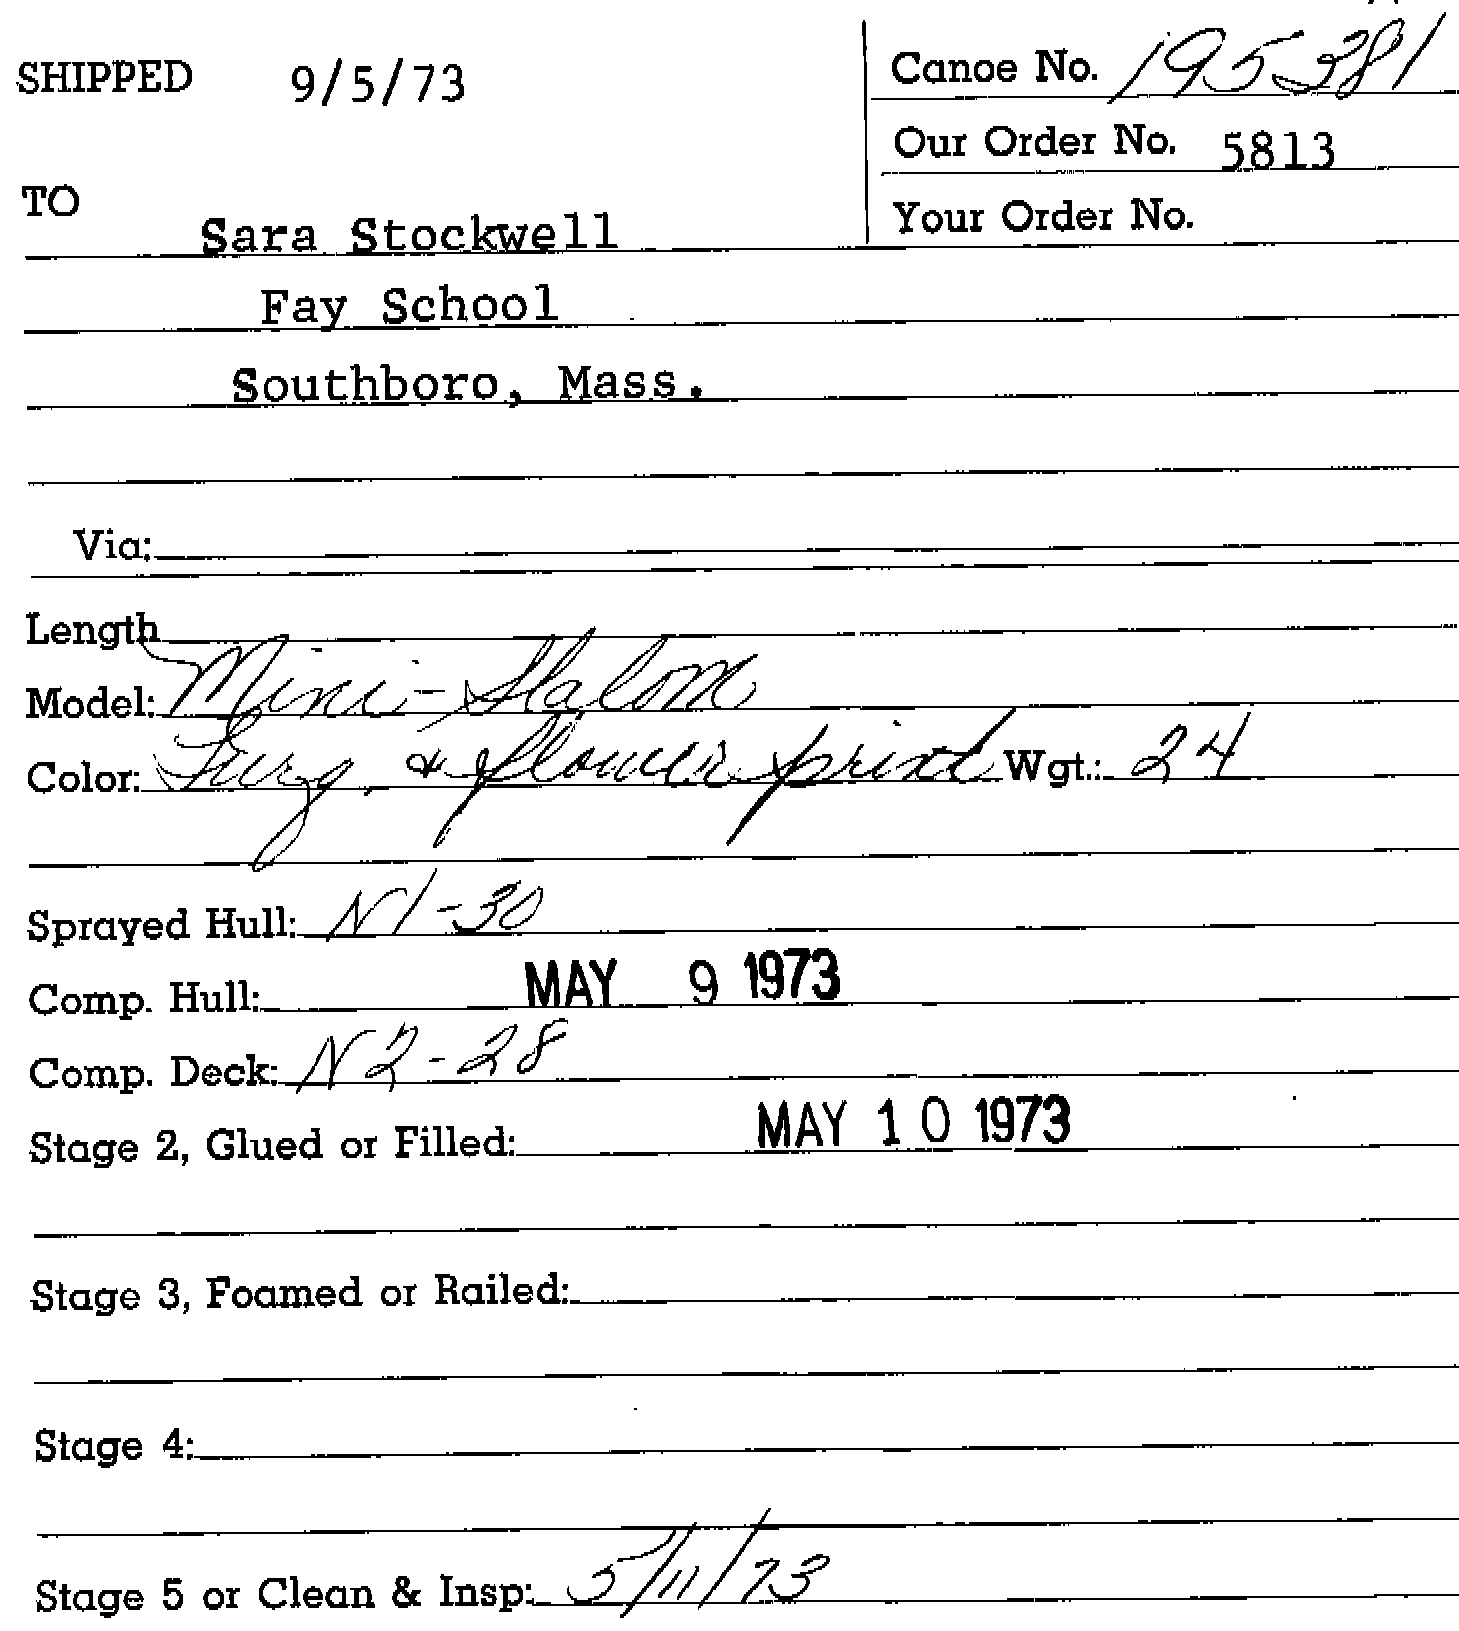 SHIPPED 9/5/73
Canoe No. 195381
Our Order No. 5813
Your Order No.
TO
Sara Stockwell
Fay School
Southboro, Mass.
Via:
Length
Model: Mini-Slalom
Color: & flower print Wgt.: 24
Sprayed Hull: N1-30
Comp. Hull: MAY 9 1973
Comp. Deck: N2-28
Stage 2, Glued or Filled: MAY 10 1973
Stage 3, Foamed or Railed:
Stage 4:
Stage 5 or Clean & Insp: 5/11/73